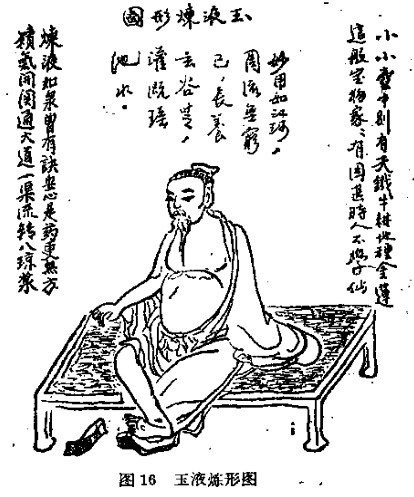 玉液煉形圖
小小壺中别有天鐵牛耕地種金蓮
這般宝物家〻有因甚時人不學仙
妙用如江河，
周流無窮
已，長養
玄谷芝，
灌溉瑤
池水。
煉液如泉曾有訣安心是藥更無方
積氣開関通大道一渠流轉八瓊漿
图16 玉液炼形图